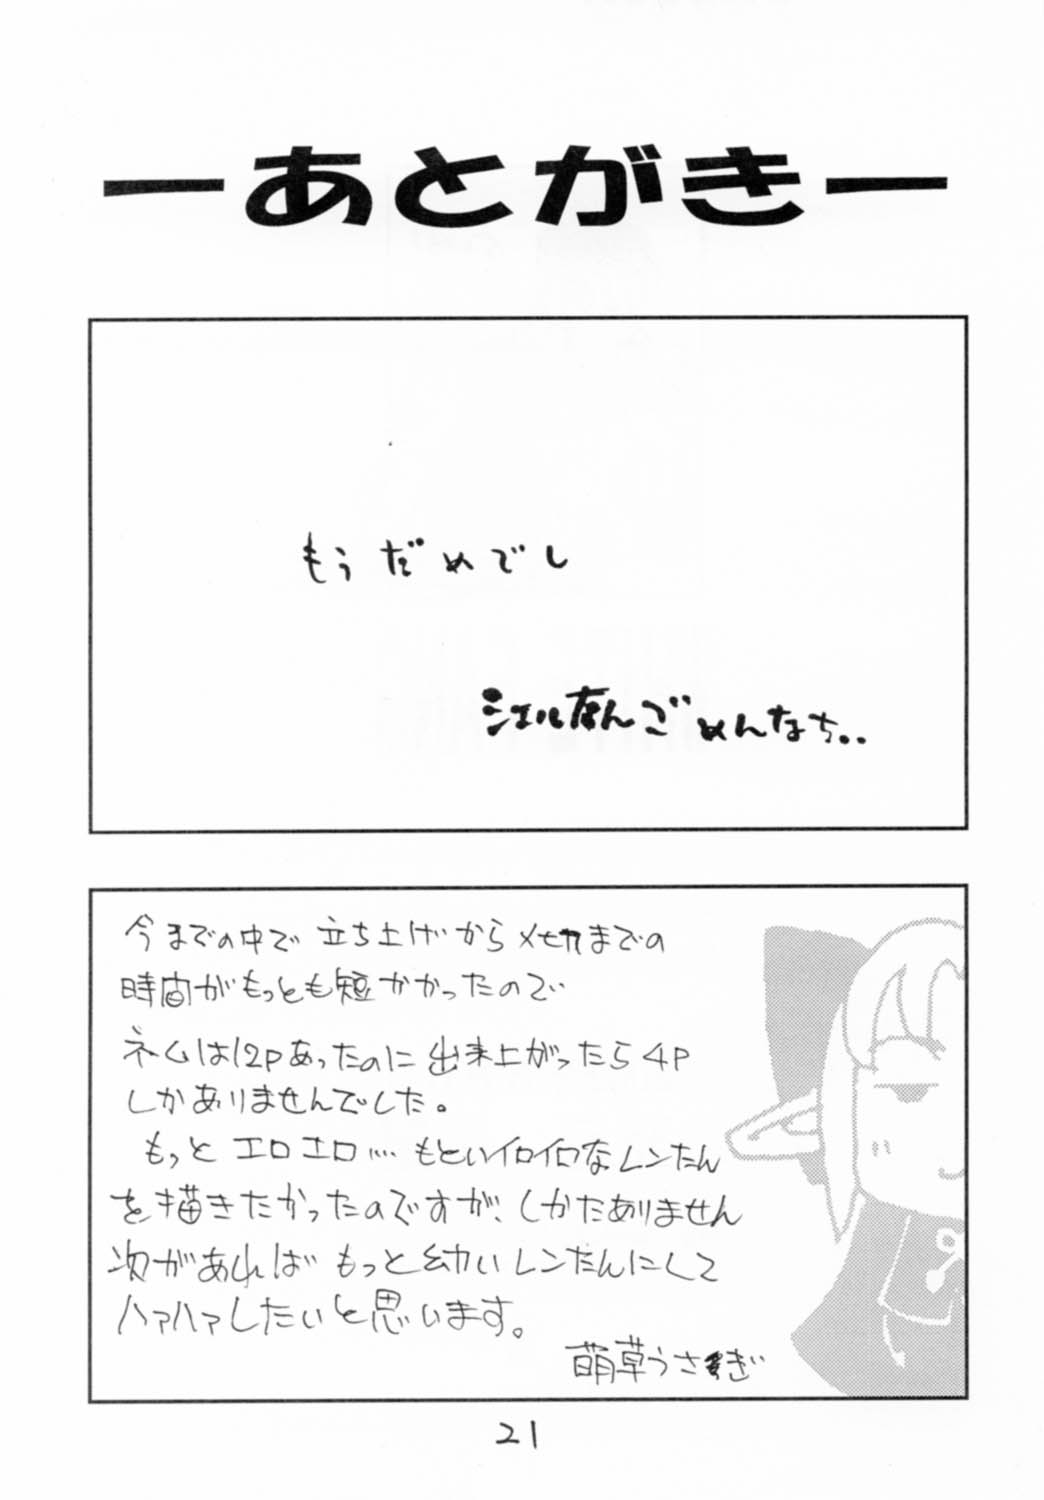 ーあとがきー
もうだめでし
シエルたんごめんなち..
今までの中で 立ち上げから メセカまでの
時間がもっとも短かかったので
ネームは12pあったのに 出来上がったら 4p
しかありませんでした。
もっと エロエロ…. もといイロイロなレンたん
を描きたかったのですが、しかたありません
次があれば もっと幼い レンたんにして
ハァハァしたいと思います。
萌草うさぎ
21